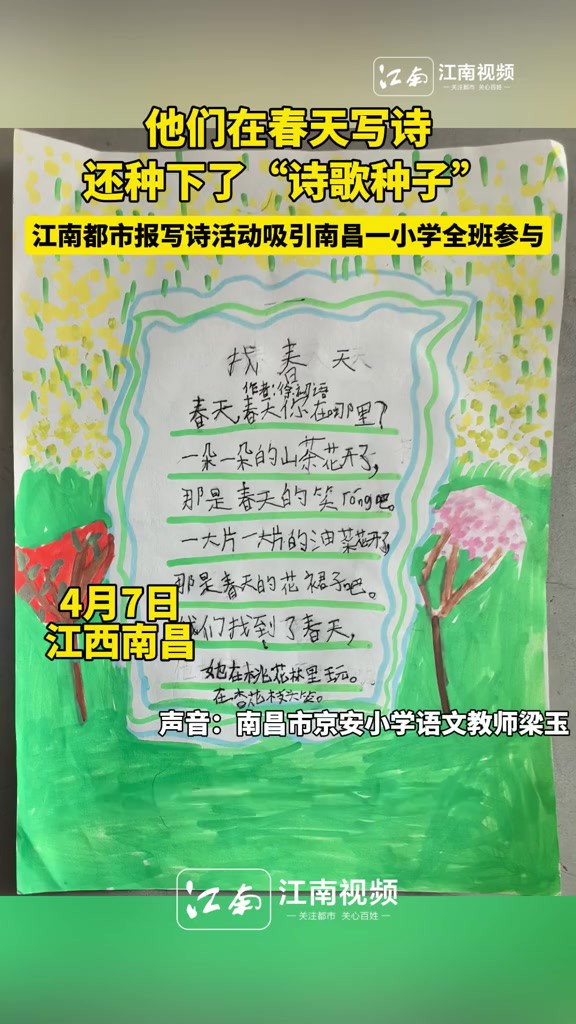 江南 江南视频
— 关注都市 关心百姓 —
他们在春天写诗
还种下了“诗歌种子”
江南都市报写诗活动吸引南昌一小学全班参与
找春天
春天春天你在哪里？
一朵一朵的山茶花开了，
那是春天的笑róng吧。
一大片一大片的油菜花开了，
那是春天的花裙子吧。
4月7日
江西南昌
们找到了春天，
她在桃花林里玩。
在杏花枝头笑。
声音：南昌市京安小学语文教师梁玉
江南 江南视频
— 关注都市 关心百姓 —